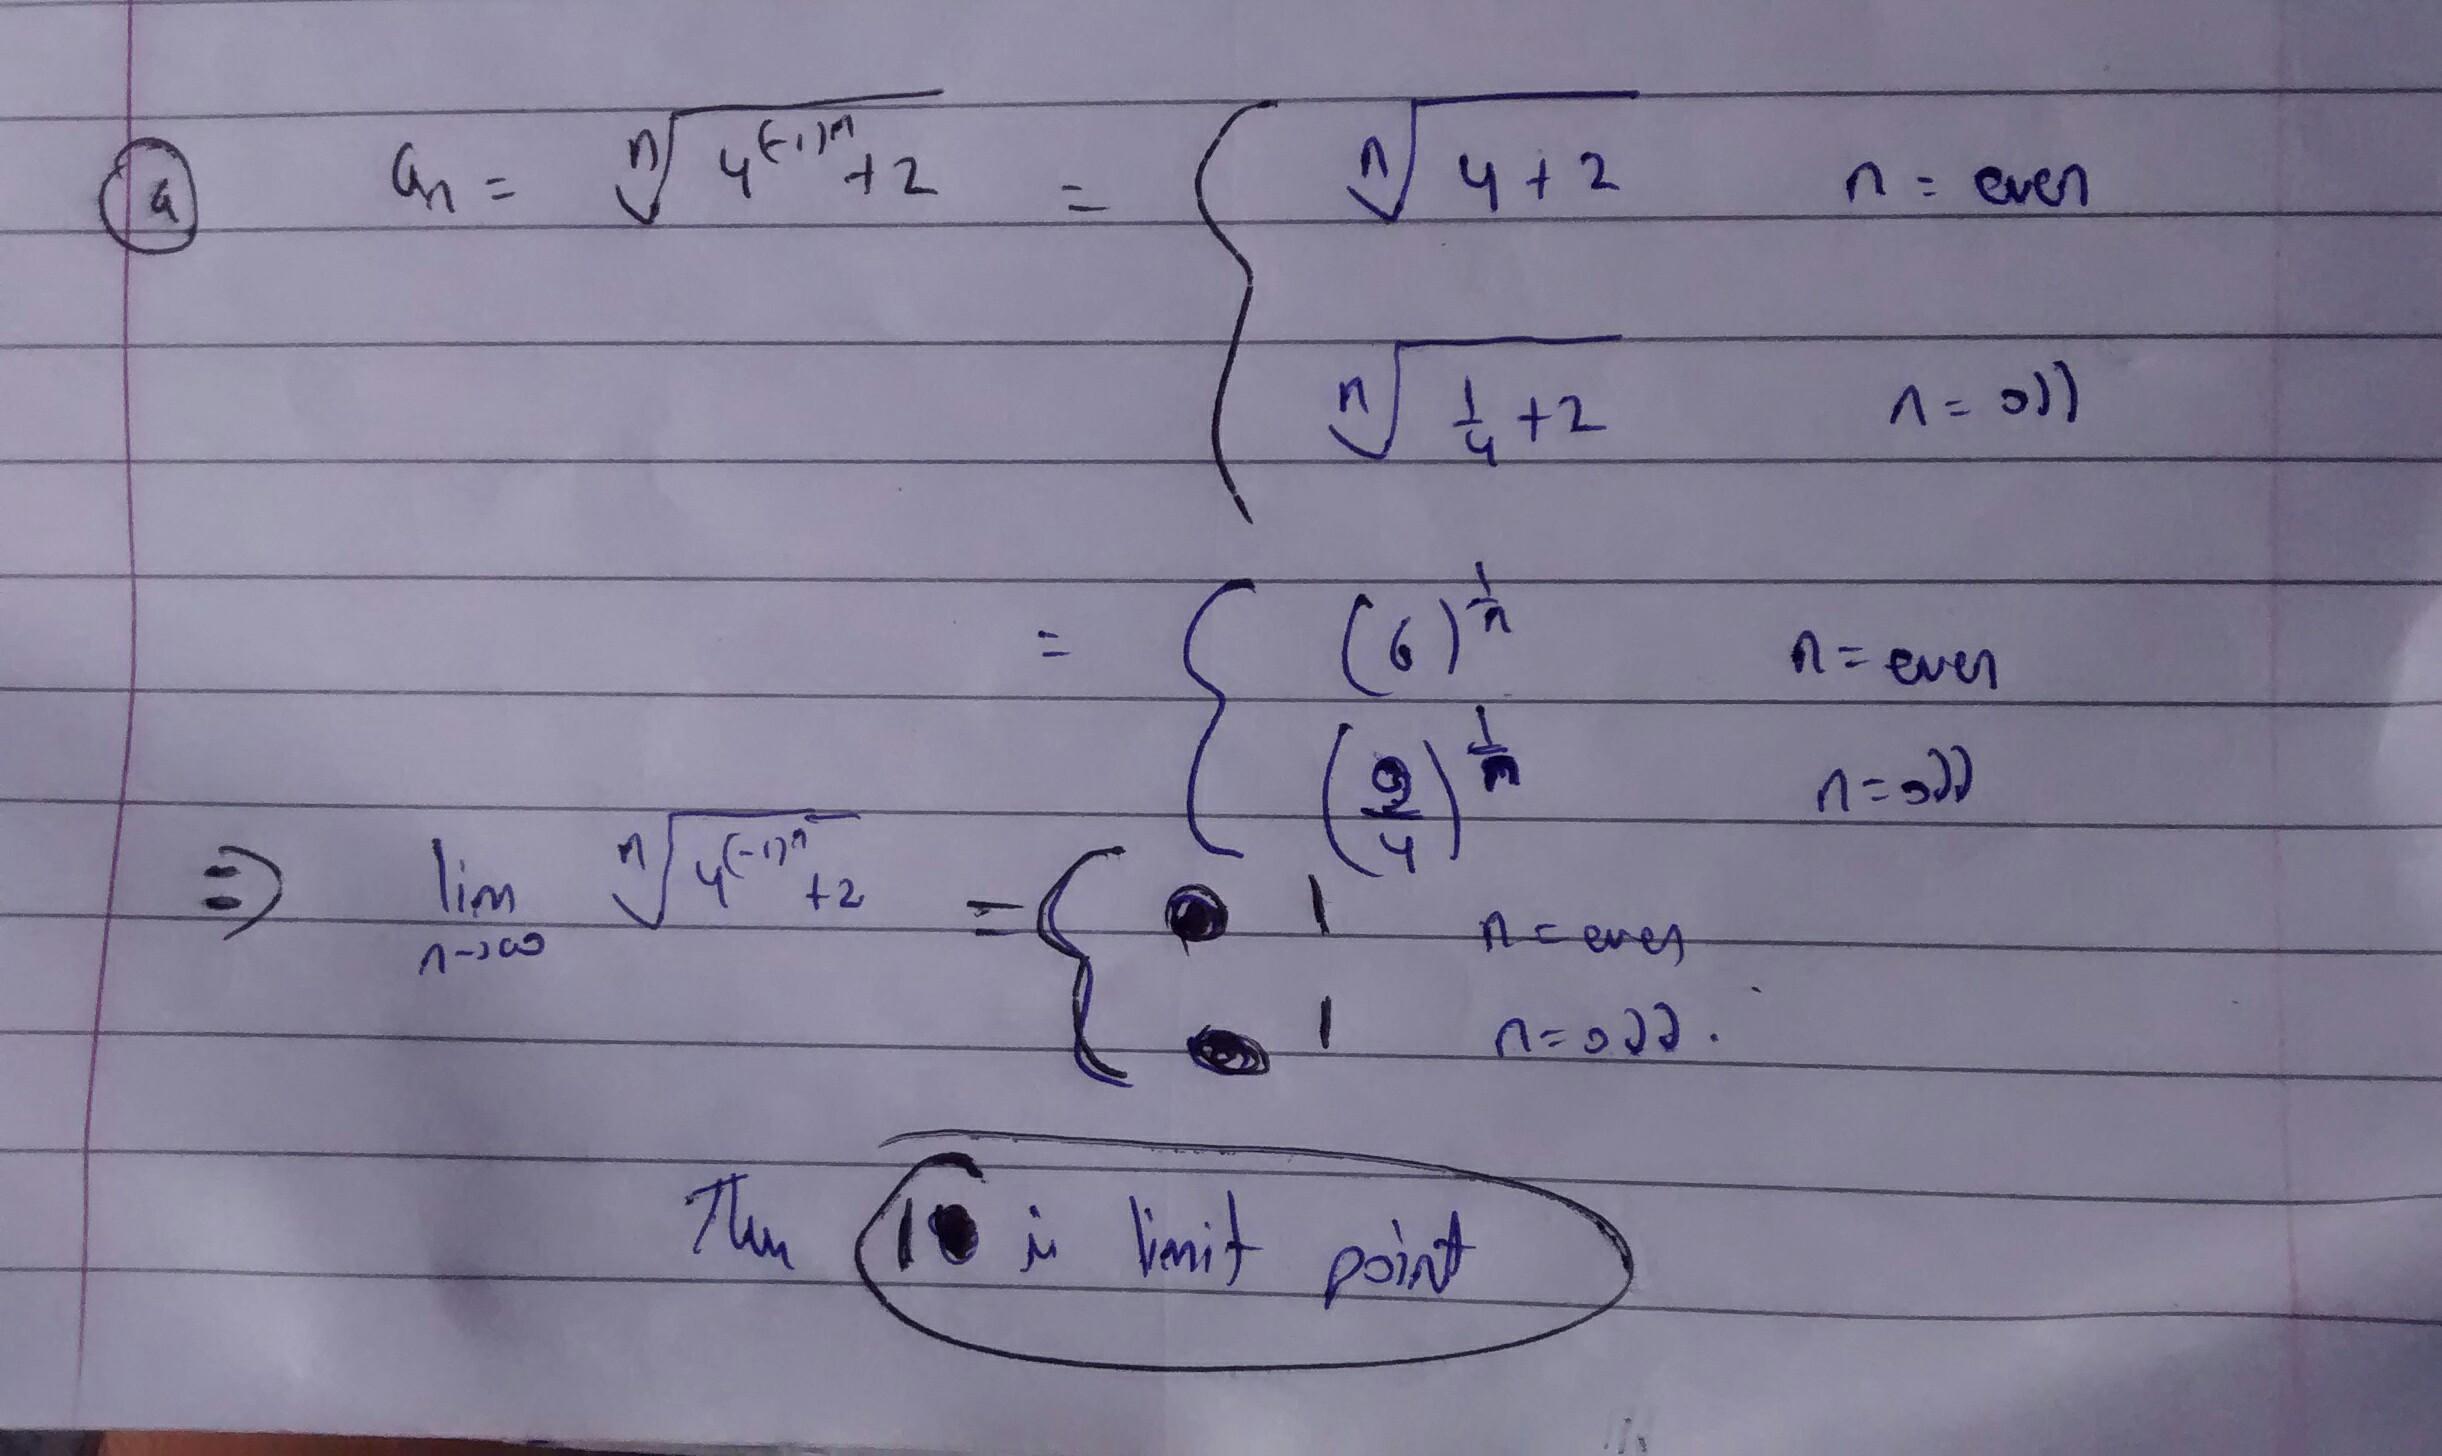 (a) aₙ = ⁿ√(4^(-1)ⁿ + 2) = { ⁿ√(4+2) n = even
ⁿ√(1/4 + 2) n = odd
= { (6)^(1/n) n = even
(9/4)^(1/n) n = odd
⇒ lim n→∞ ⁿ√(4^(-1)ⁿ + 2) = { 1 n = even
1 n = odd.
Then 1 is limit point